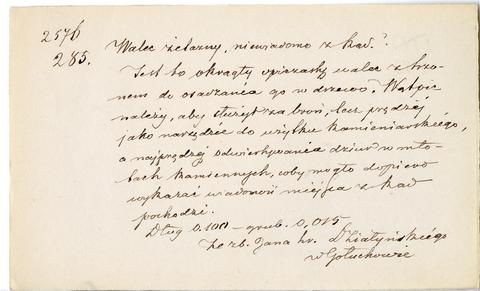 2576
285.
Walec żelazny, niewiadomo z kąd?.
Jest to okrągły spiczasty walec z trzo-
nem do osadzania go w drzewo. Wątpić
należy, aby służył za broń, lecz prędzej
jako narzędzie do użytku kamieniarskiego,
a najprędzej do wiercenia dziur w mło-
tach kamiennych, coby mogło dopiero
wykazać wiadomość miejsca z kąd
pochodzi.
Dług. 0.100 – grub. 0,015
Ze zb. Jana hr. Działyńskiego
w Gołuchowie